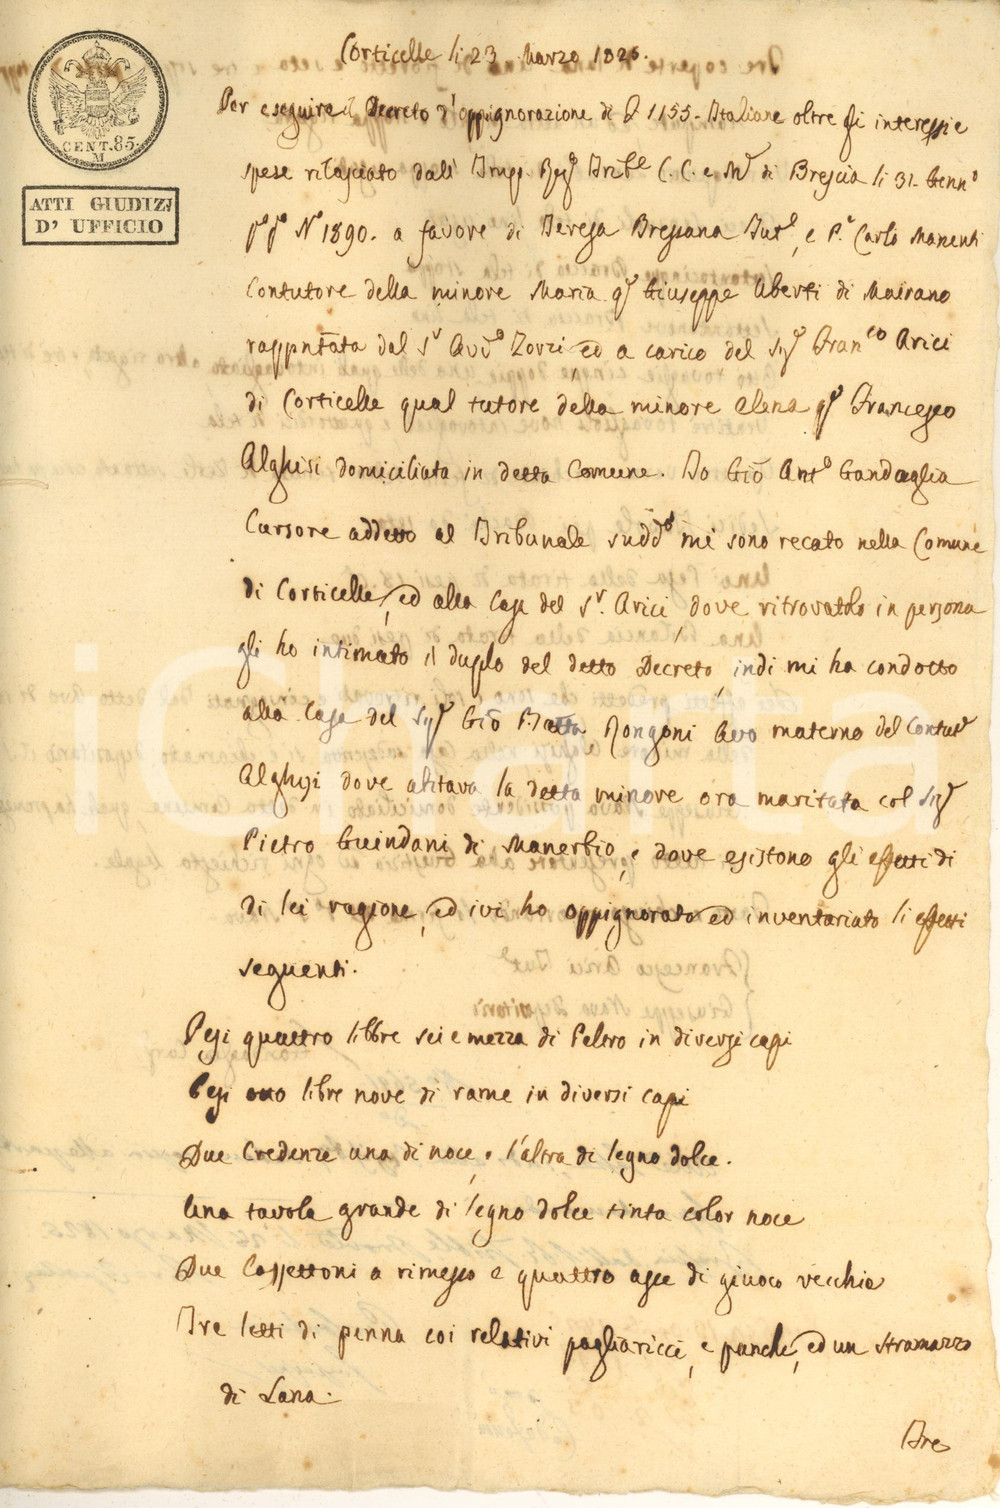 CENT. 85.
M
ATTI GIUDIZJ
D' UFFICIO
Corticelle li 23 Marzo 1826.
Per eseguire il Decreto d'oppignorazione di £ 1155- Italiane oltre gli interessi e
spese rilasciato dall' Trib.le C. C. e M.e di Brescia li 31. Genn.o
p.o p.o N.o 1890. a favore di Teresa Bressana Tut.e, e P.e Carlo Manenti
Contutore della minore Maria q.m Giuseppe Uberti di Mairano
rappntata dal S.r Avv.o Zovzi ed a carico del Sig.r Fran.co Arici
di Corticelle qual tutore della minore Elena q.m Francesco
Alghisi domiciliata in detta Comune. Io Gio Ant.o Gandaglia
Cursore addetto al Tribunale sudd.o mi sono recato nella Comune
di Corticelle, ed alla Casa del S.r Arici, dove ritrovatolo in persona
gli ho intimato il duplo del detto Decreto, indi mi ha condotto
alla Casa del Sig.r Gio Batta Rongoni Avo materno del Contut.e
Alghisi dove abitava la detta minore ora maritata col Sig.r
Pietro Guindani di Manerbio, e dove esistono gli effetti di
di lei ragione, ed ivi ho oppignorato ed inventariato li effetti
seguenti.
Pesi quattro libbre sei e mezza di Peltro in diversi capi
Pesi otto libre nove di rame in diversi capi
Due Credenze una di noce, e l'altra di legno dolce.
Una tavola grande di legno dolce tinta color noce
Due Cassettoni a rimesso e quattro asse di giuoco vecchie
Tre letti di penna coi relativi pagliaricci, e panche, ed un stramazzo
di Lana.
Tre
iCharta